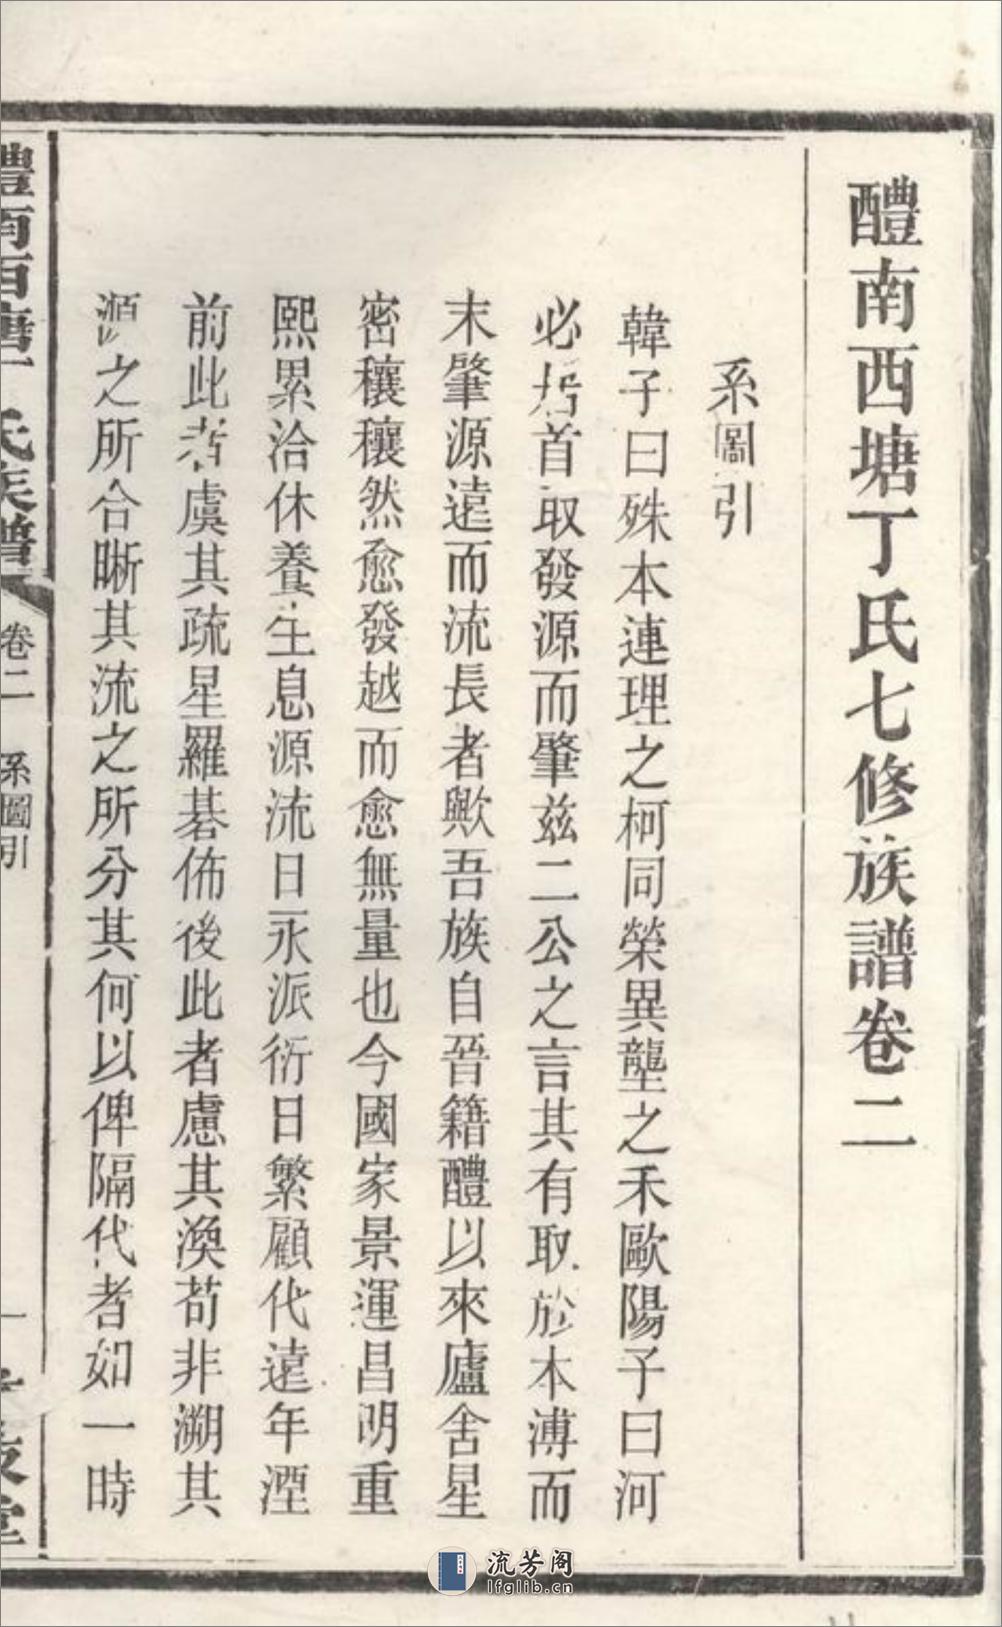 醴南西塘丁氏七修族譜卷二
系圖引
韓子曰殊本連理之柯同榮異壟之禾歐陽子曰河
必括首取發源而肇茲二公之言其有取於本溥而
末肇源遠而流長者歟吾族自晉籍醴以來廬舍星
密穰穰然愈發越而愈無量也今國家景運昌明重
熙累洽休養生息源流日永派衍日繁顧代遠年湮
前此者虞其疏星羅碁佈後此者慮其渙苟非溯其
源之所合晰其流之所分其何以俾隔代者如一時
醴南西塘丁氏族譜
卷二
系圖引
一
流芳阁
lfglib.cn